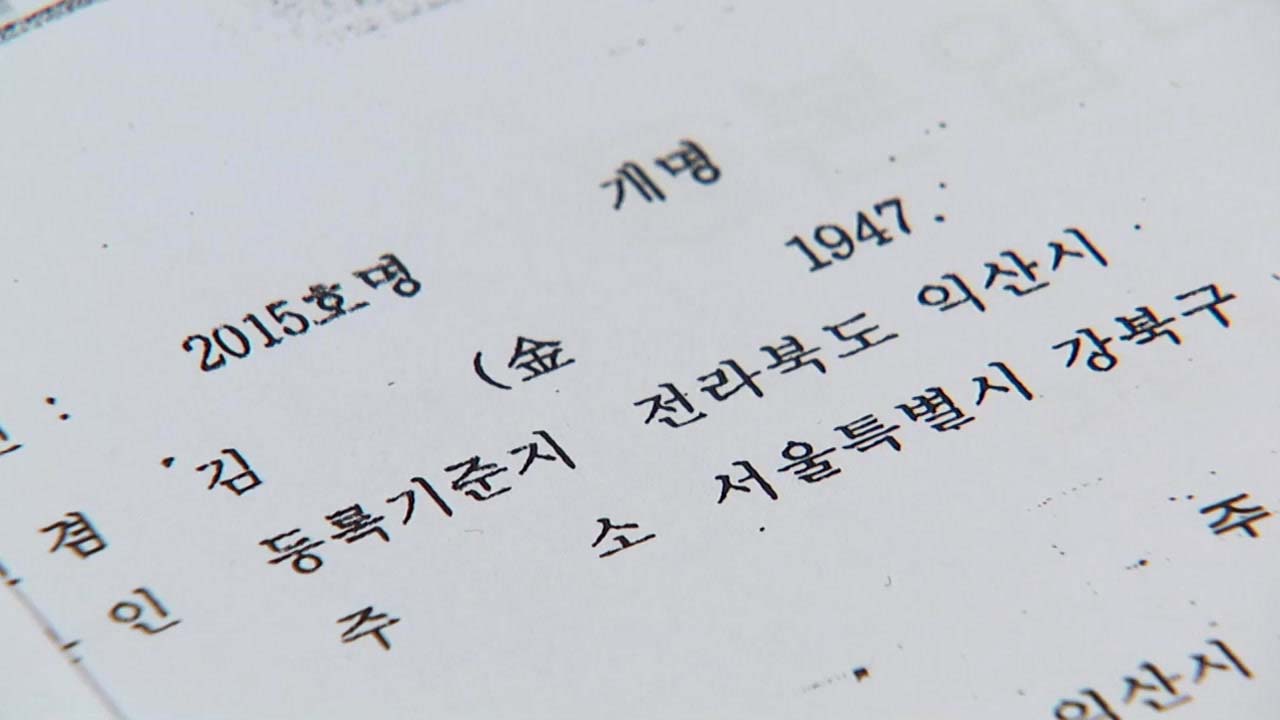 2015호명 개명
겸 김 (金 1947.
인 등록기준지 전라북도 의산시
주 소 서울특별시 강북구
주
의산시